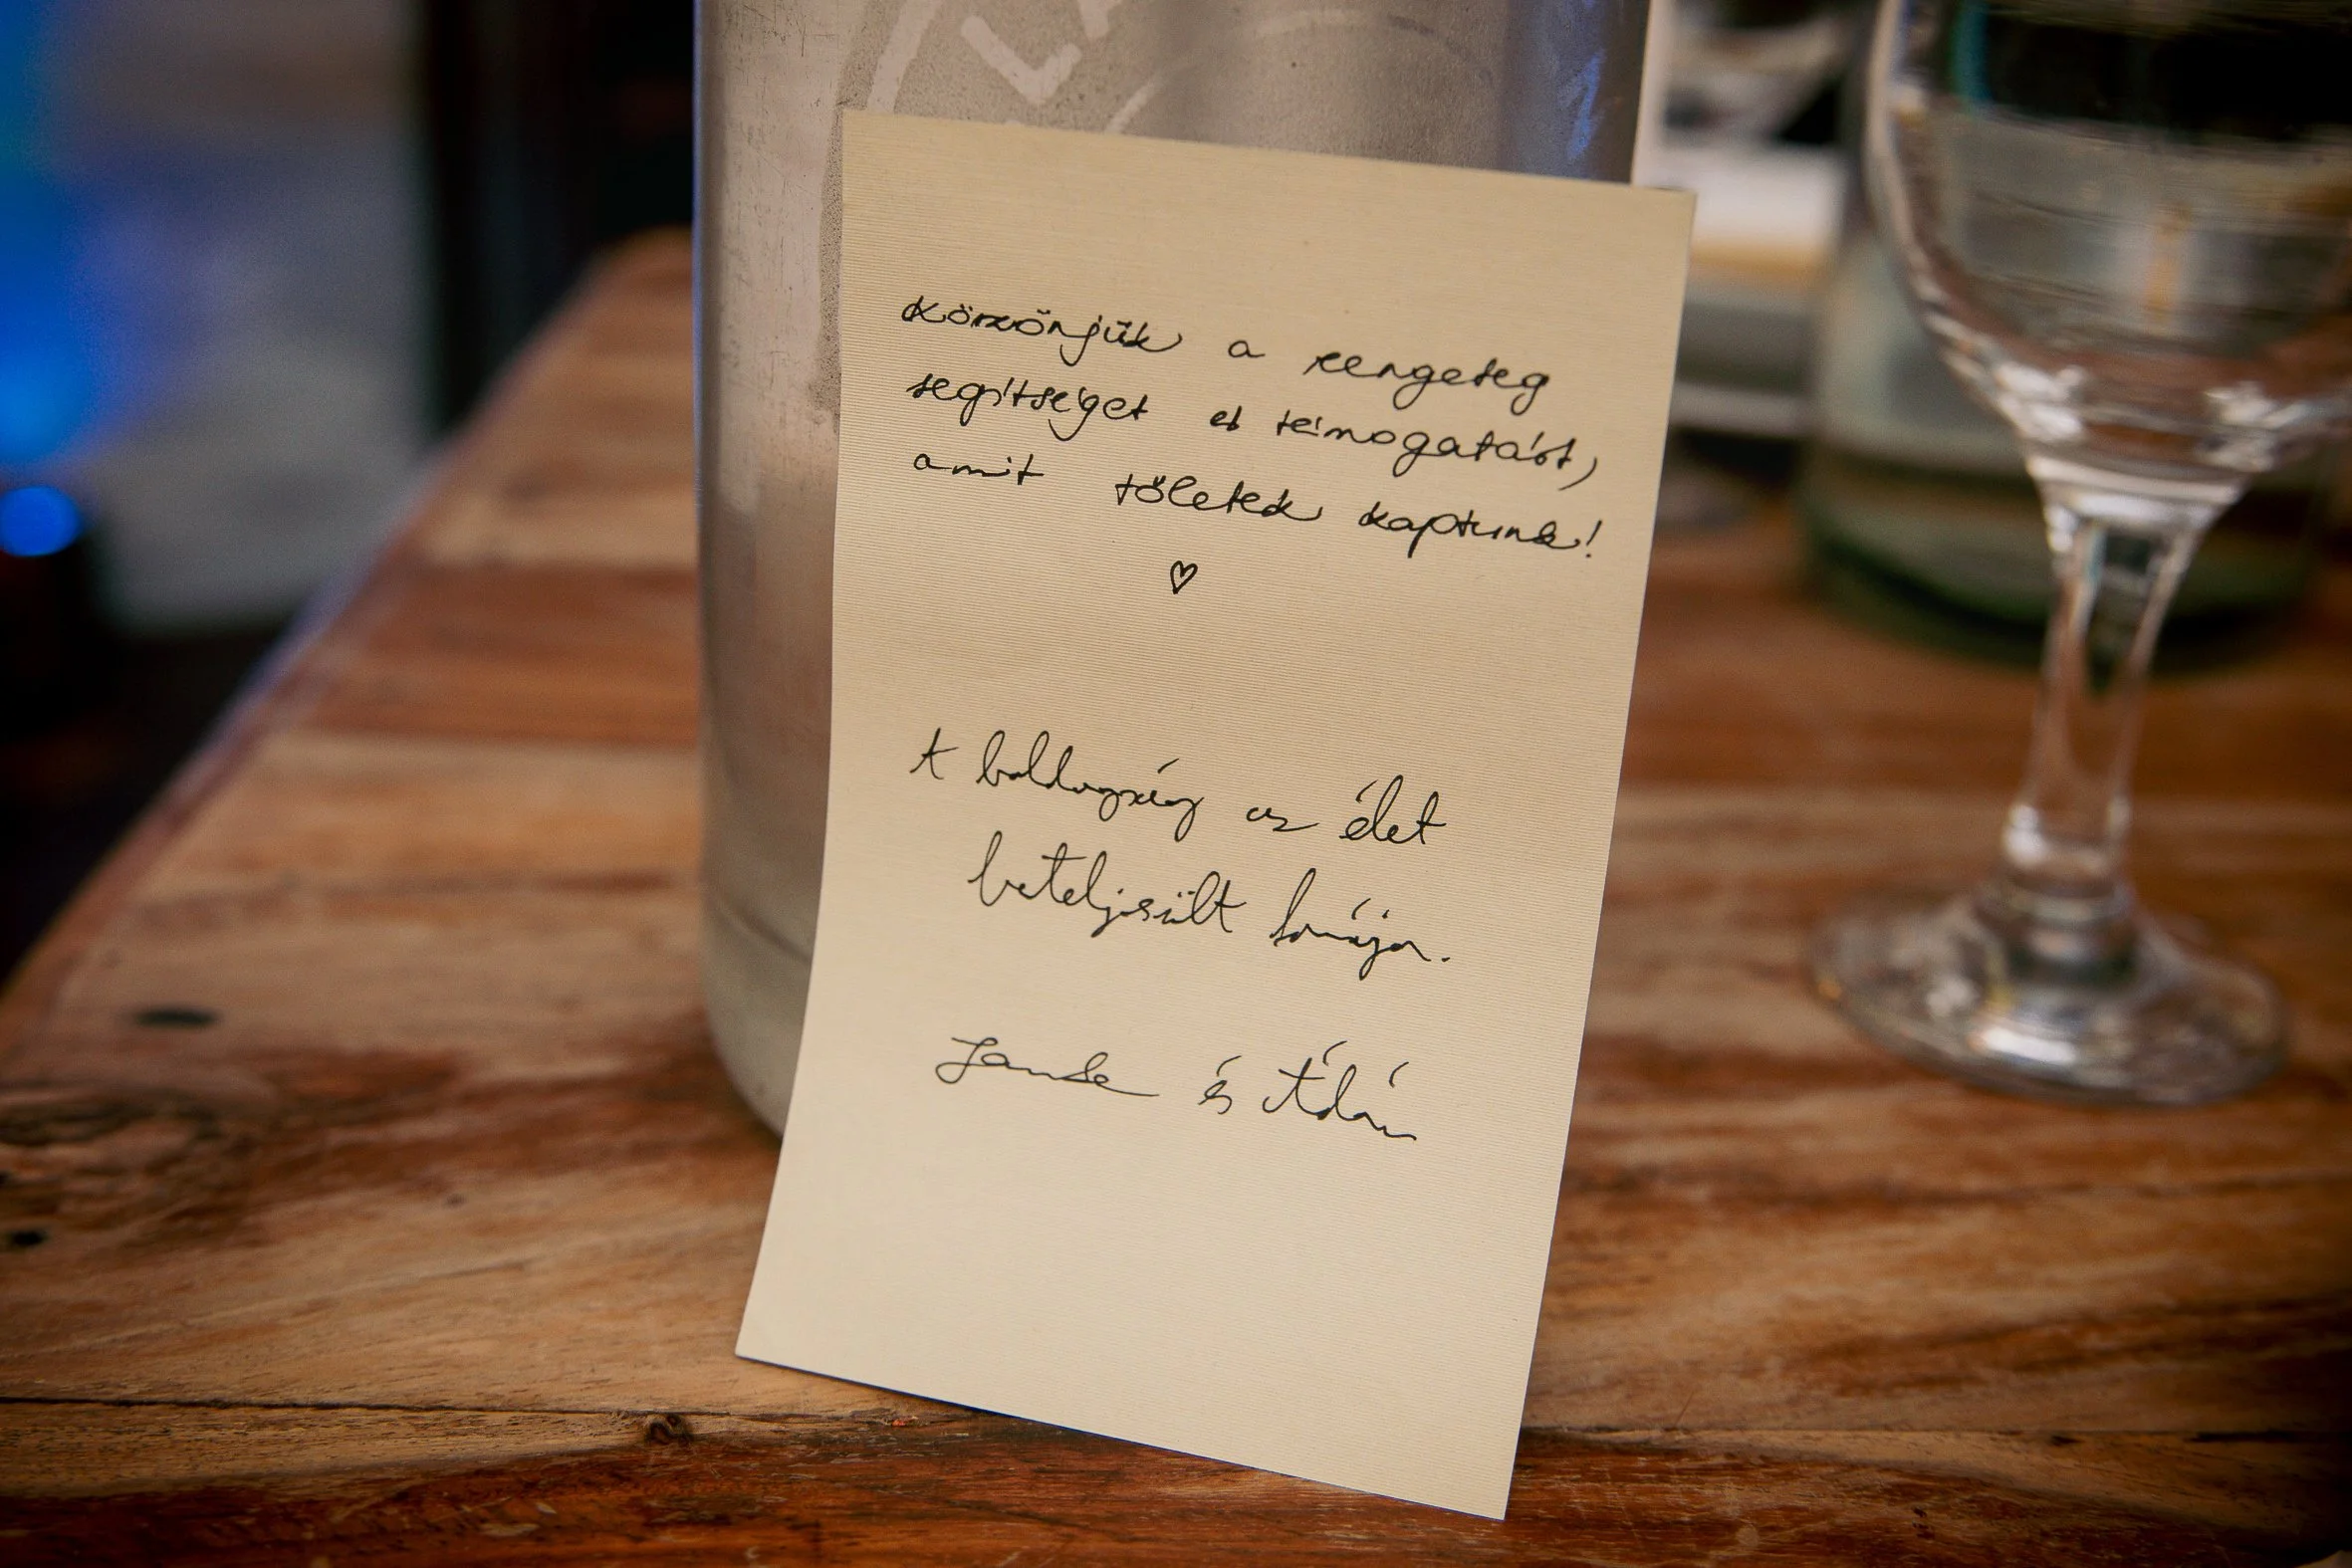 Köszönjük a rengeteg
segítséget és támogatást,
amit tőletek kaptunk!
A boldogság az élet
beteljesült
és Ádám